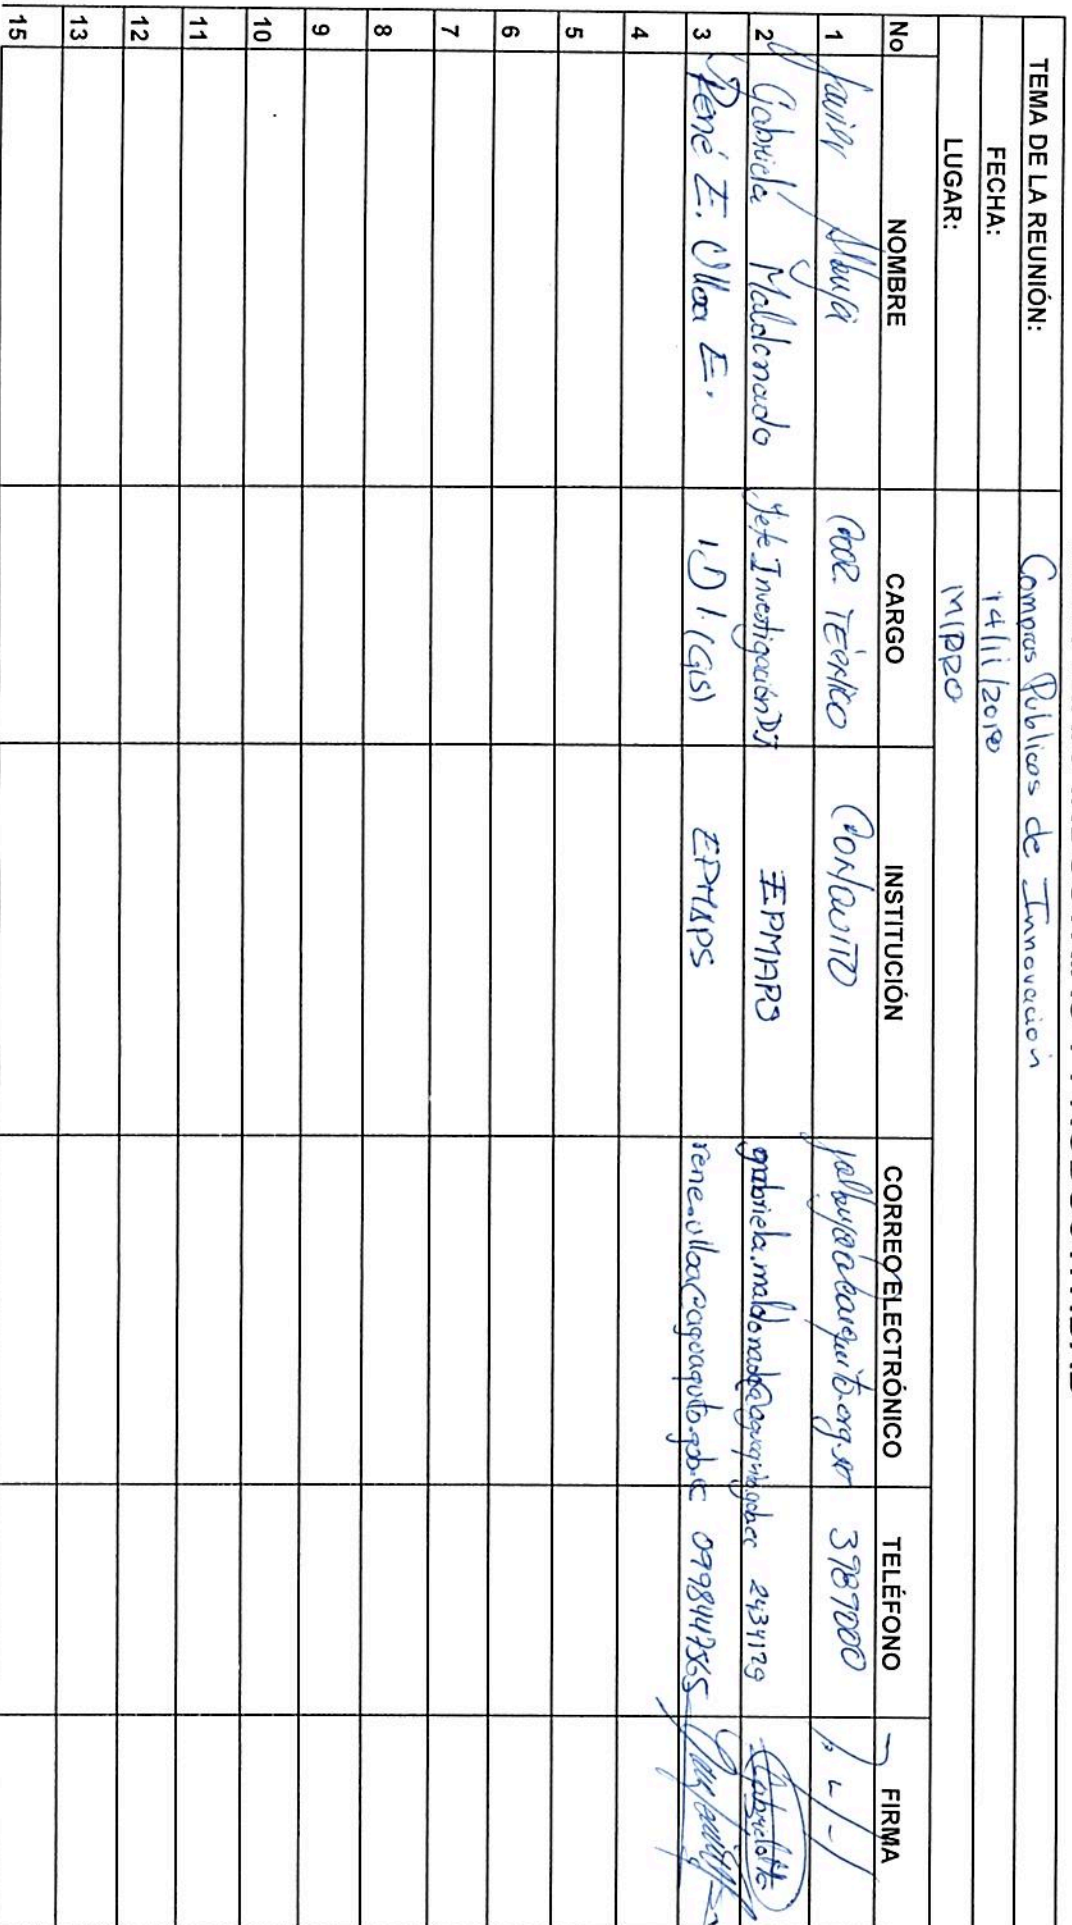 TEMA DE LA REUNIÓN: Compras Publicas de Innovacion
FECHA: 14/11/2018
LUGAR: MIPRO
No NOMBRE CARGO INSTITUCIÓN CORREO ELECTRÓNICO TELÉFONO FIRMA
1 Javier Albuja COOR. TÉCNICO CONQUITO 3989000
2 Gabriela Maldonado Jefe Investigación EPMAPS gabriela.maldonado@aguaquito.gob.ec 2434179
3 René E. Ulloa E. EPMAPS rene.ulloa@aguaquito.gob.ec
4
5
6
7
8
9
10
11
12
13
15